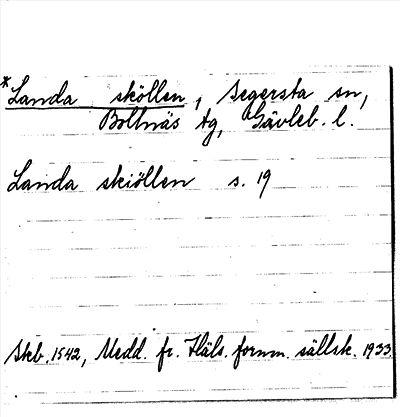 *Landa sköllen, Segersta sn,
Bollnäs tg, Gävleb. l.
Landa skiöllen s. 19
Skb. 1542, Medd. fr. Häls. fornm. sällsk. 1933